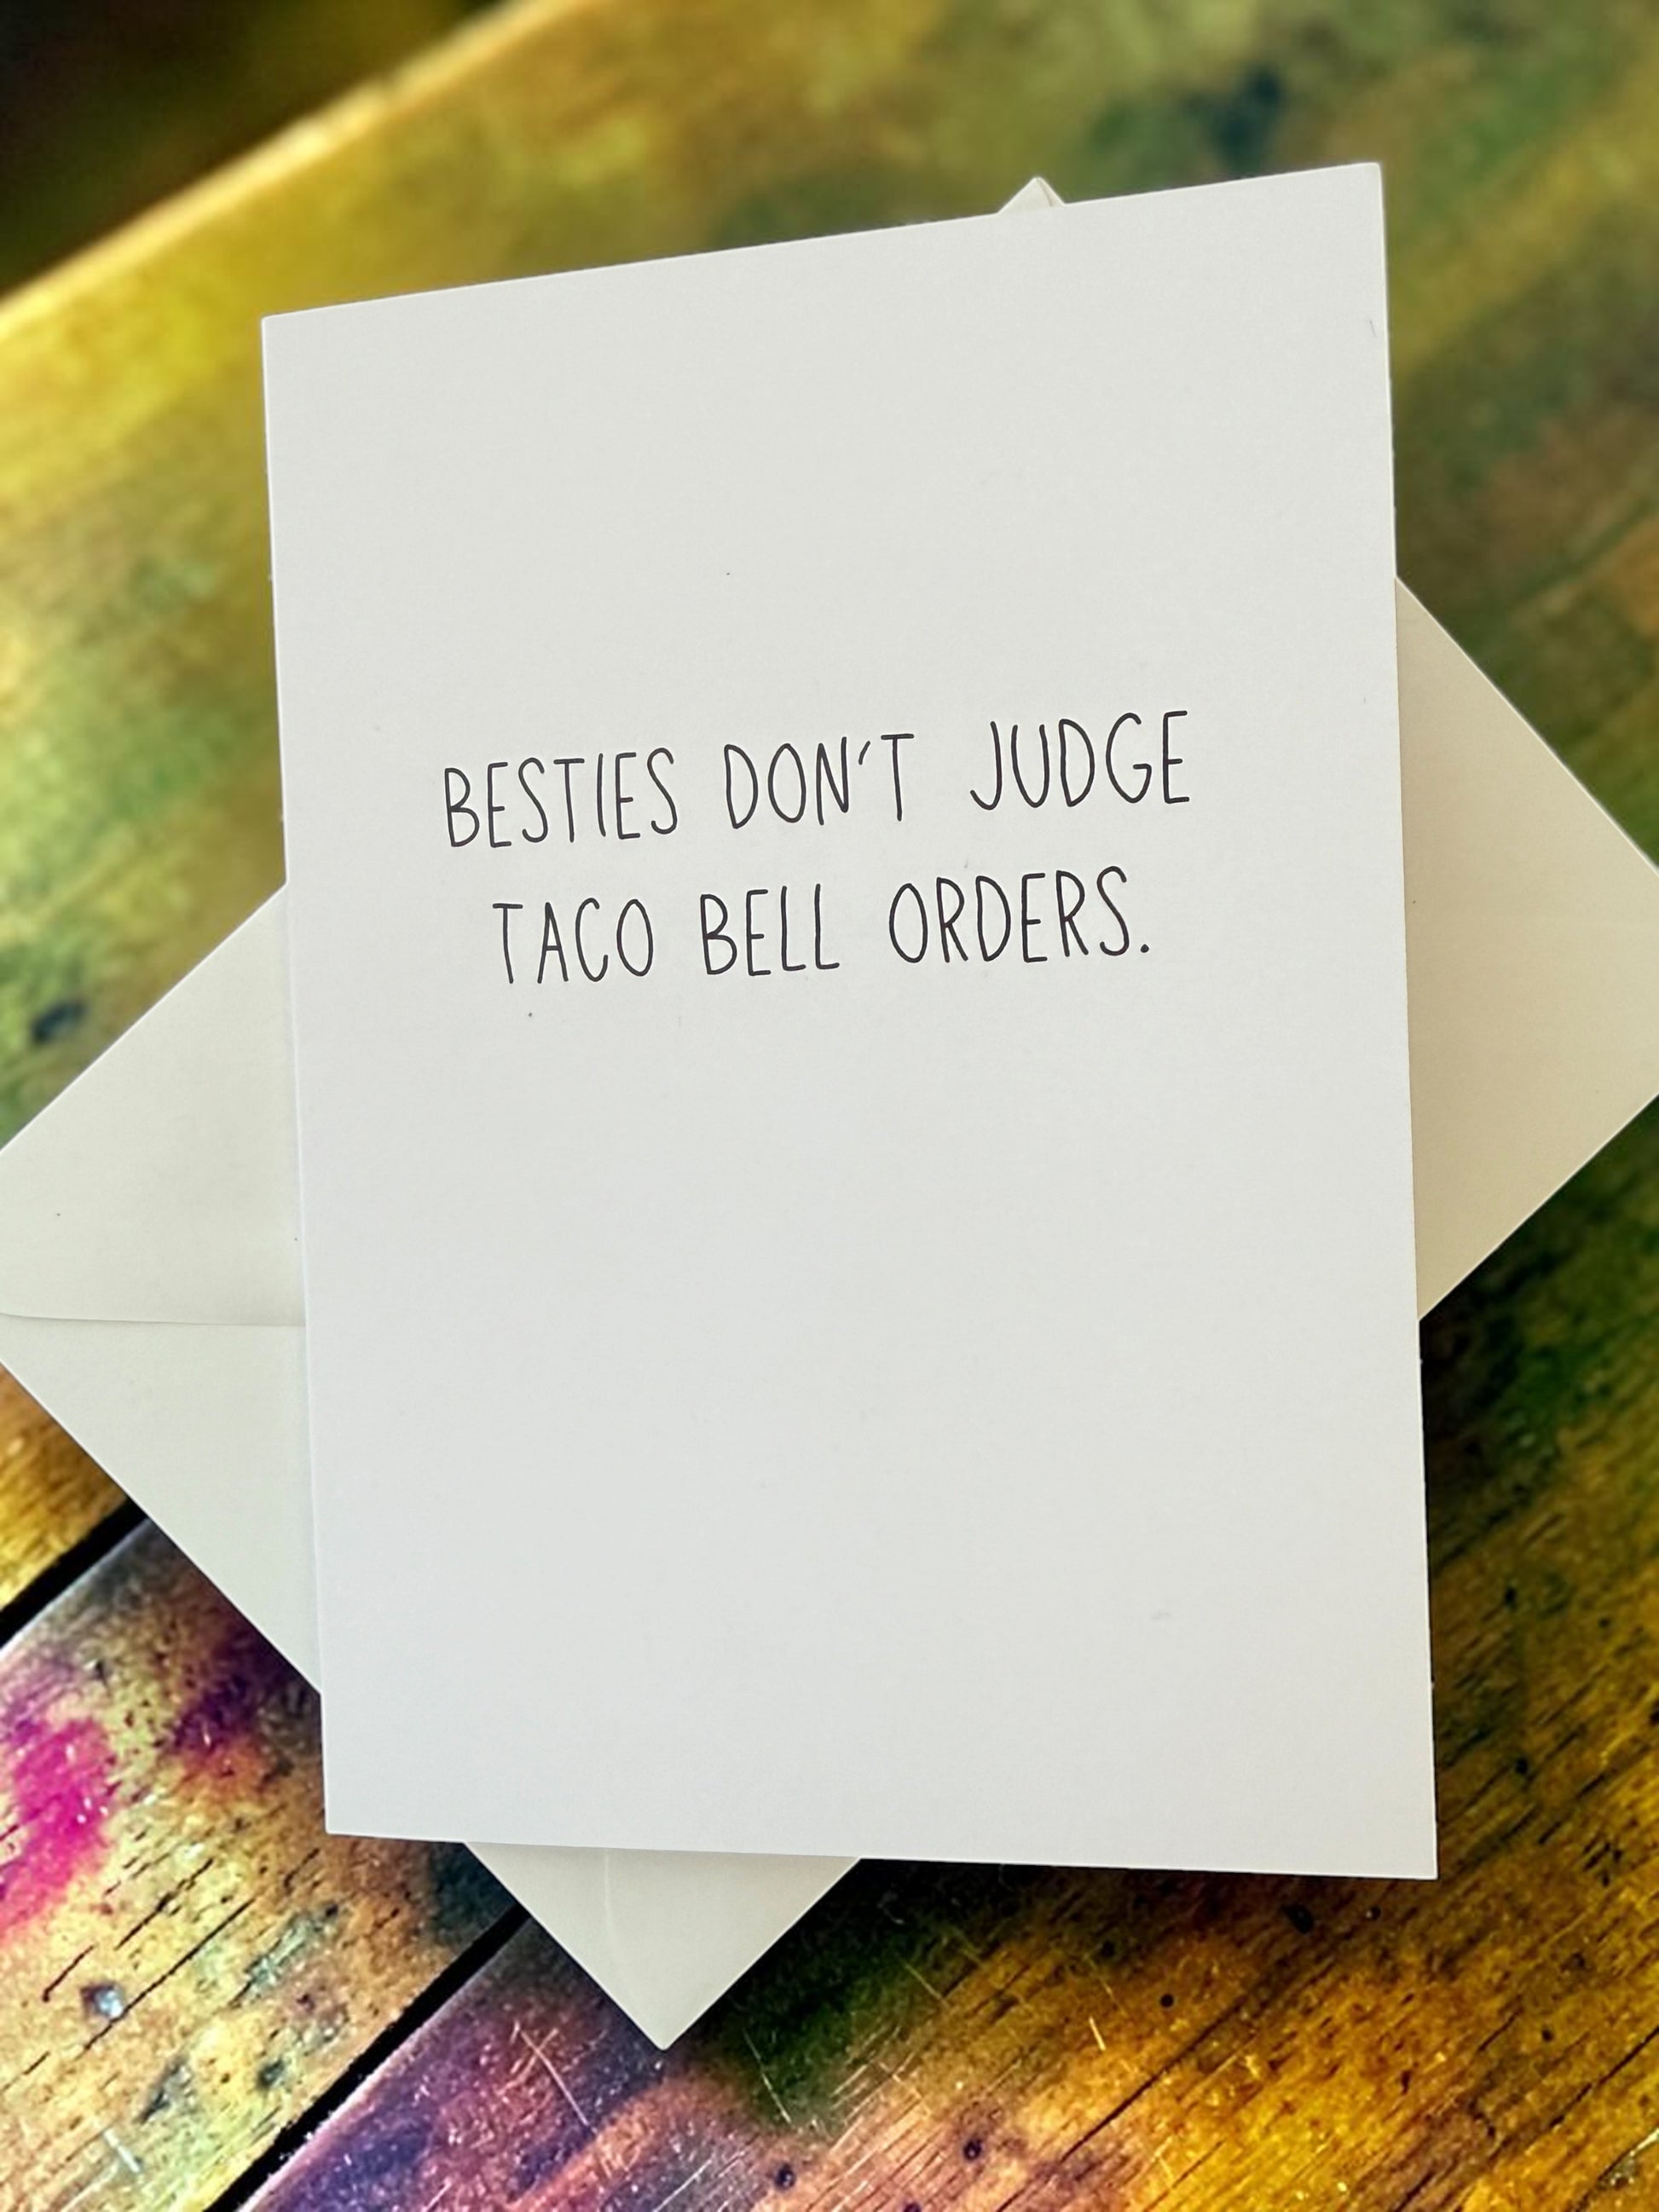 BESTIES DON'T JUDGE
TACO BELL ORDERS.